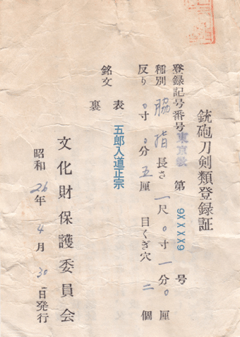 銃砲刀剣類登録証
登録記号番号 東京 第 9XXX6 号
種別 脇指 長さ 一尺 〇寸 一分 〇厘
反り 〇寸 〇分 五厘 目くぎ穴 二個
銘文 表 五郎入道正宗
裏
文化財保護委員会
昭和 26年 4月 30日発行